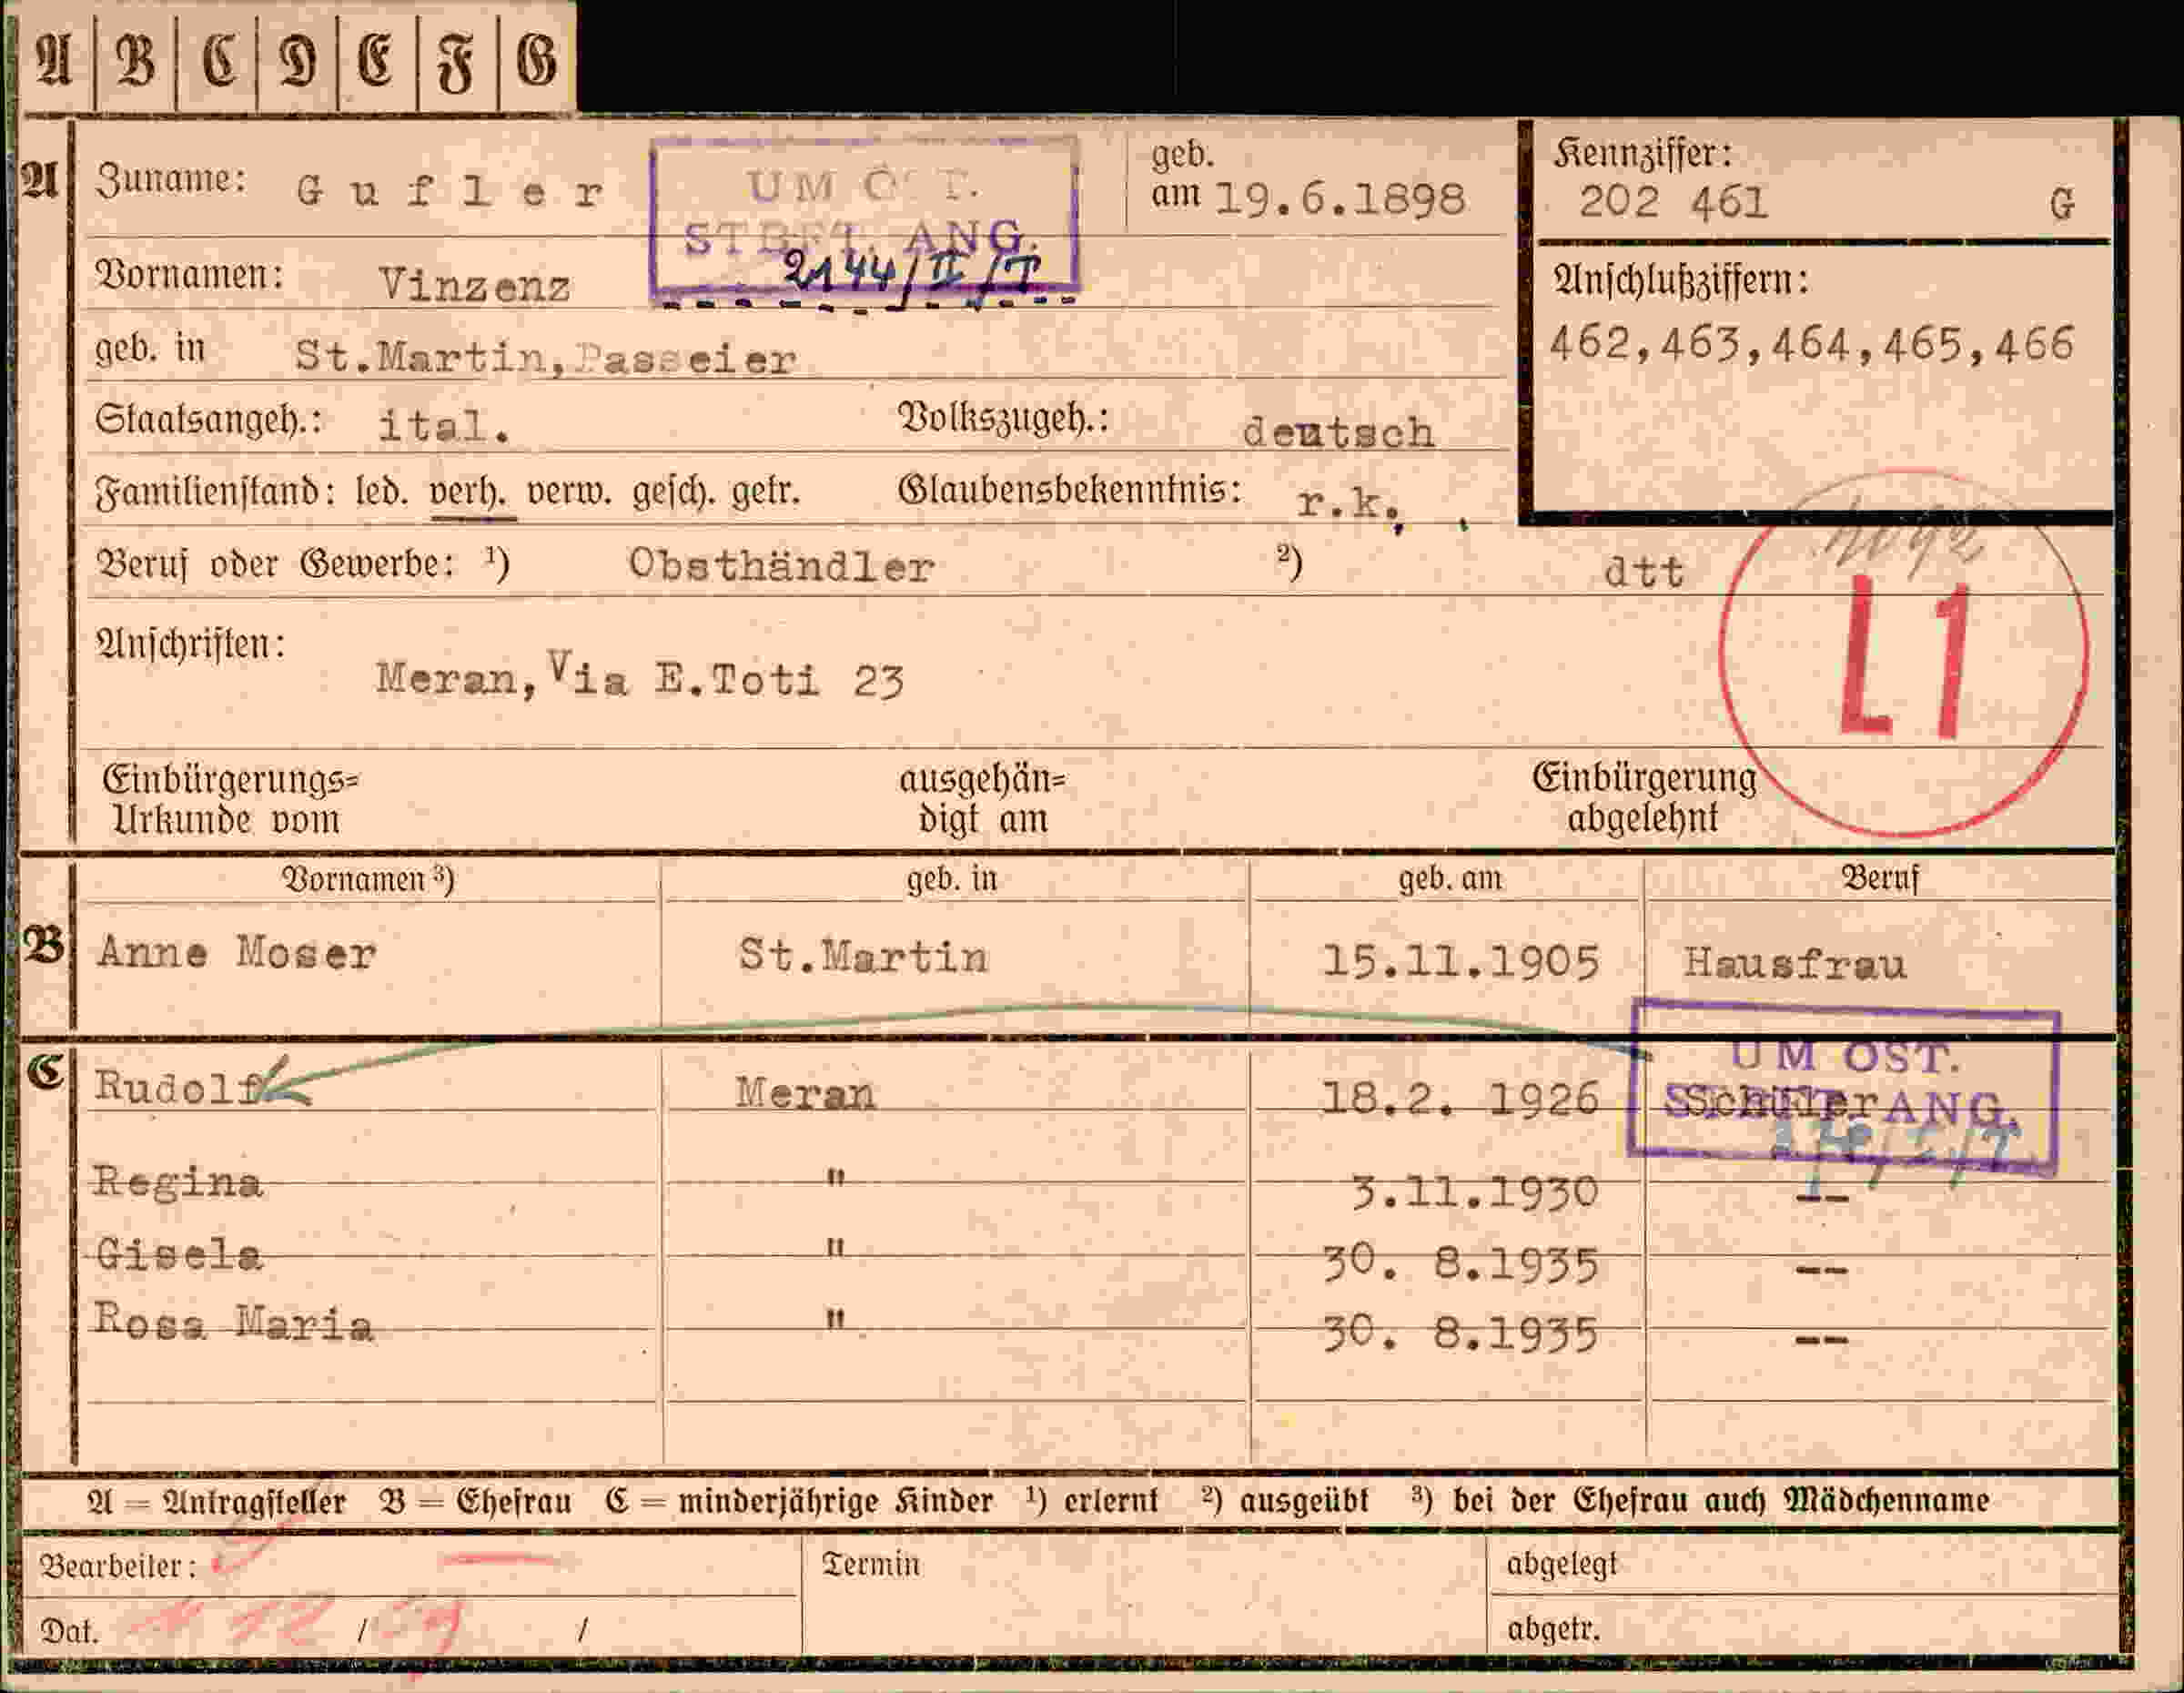 A B C D E F G
A Zuname: Gufler
UM OST.
STBFT. ANG.
2144/II/T
geb.
am 19.6.1898
Kennziffer:
202 461 G
Vornamen: Vinzenz
Anschlußziffern:
462,463,464,465,466
geb. in St.Martin,Passeier
Staatsangeh.: ital. Volkszugeh.: deutsch
Familienstand: led. verh. verw. gesch. getr. Glaubensbekenntnis: r.k.
Beruf oder Gewerbe: ¹) Obsthändler ²) dtt
L1
Anschriften:
Meran, Via E.Toti 23
Einbürgerungs=
Urkunde vom
ausgehän=
digt am
Einbürgerung
abgelehnt
Vornamen ³) geb. in geb. am Beruf
B Anne Moser St.Martin 15.11.1905 Hausfrau
UM OST.
ANG.
C Rudolf Meran 18.2. 1926 Schüler
Regina " 3.11.1930 --
Gisela " 30. 8.1935 --
Rosa Maria " 30. 8.1935 --
A = Antragsteller B = Ehefrau C = minderjährige Kinder ¹) erlernt ²) ausgeübt ³) bei der Ehefrau auch Mädchenname
Bearbeiter: Termin abgelegt
Dat. / / abgetr.